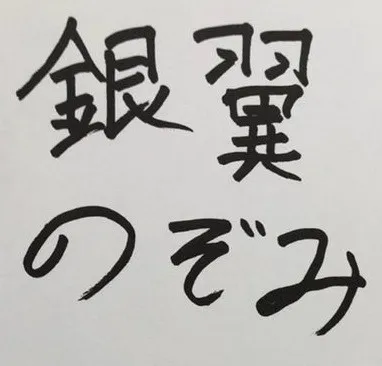 銀翼
のぞみ